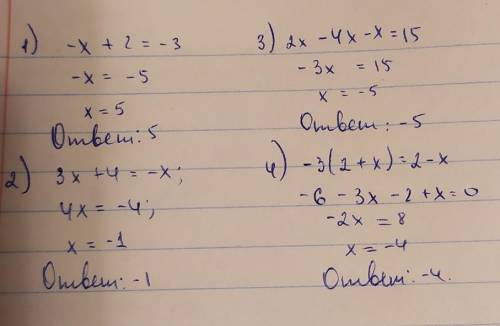 1) -x + 2 = -3
-x = -5
x = 5
Ответ: 5
2) 3x + 4 = -x;
4x = -4;
x = -1
Ответ: -1
3) 2x - 4x - x = 15
-3x = 15
x = -5
Ответ: -5
4) -3(2 + x) = 2 - x
-6 - 3x - 2 + x = 0
-2x = 8
x = -4
Ответ: -4.